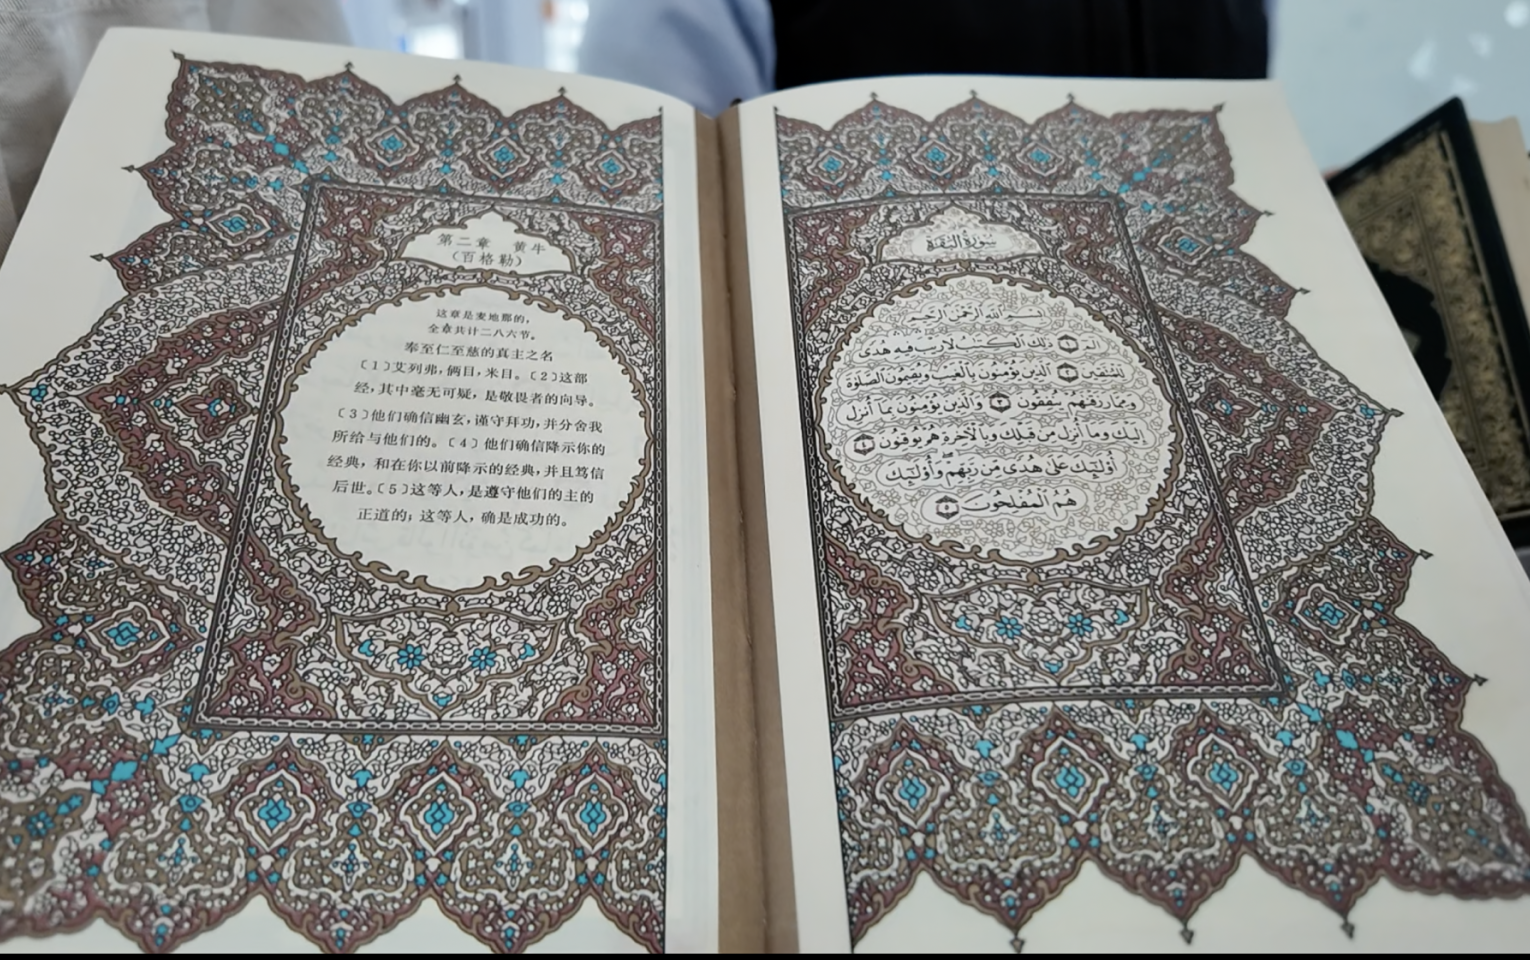 第二章 黄牛
(百格勒)
这章是麦地那的,
全章共计二八六节。
奉至仁至慈的真主之名
〔1〕艾列弗,俩目,米目。〔2〕这部
经,其中毫无可疑,是敬畏者的向导。
〔3〕他们确信幽玄,谨守拜功,并分舍我
所给与他们的。〔4〕他们确信降示你的
经典,和在你以前降示的经典,并且笃信
后世。〔5〕这等人,是遵守他们的主的
正道的;这等人,确是成功的。
سورة البقرة
بسم الله الرحمن الرحيم
الم ١ ذلك الكتب لا ريب فيه هدى
للمتقين ٢ الذين يؤمنون بالغيب ويقيمون الصلوة
ومما رزقنهم ينفقون ٣ والذين يؤمنون بما أنزل
إليك وما أنزل من قبلك وبالآخرة هم يوقنون ٤
أولئك على هدى من ربهم وأولئك
هم المفلحون ٥